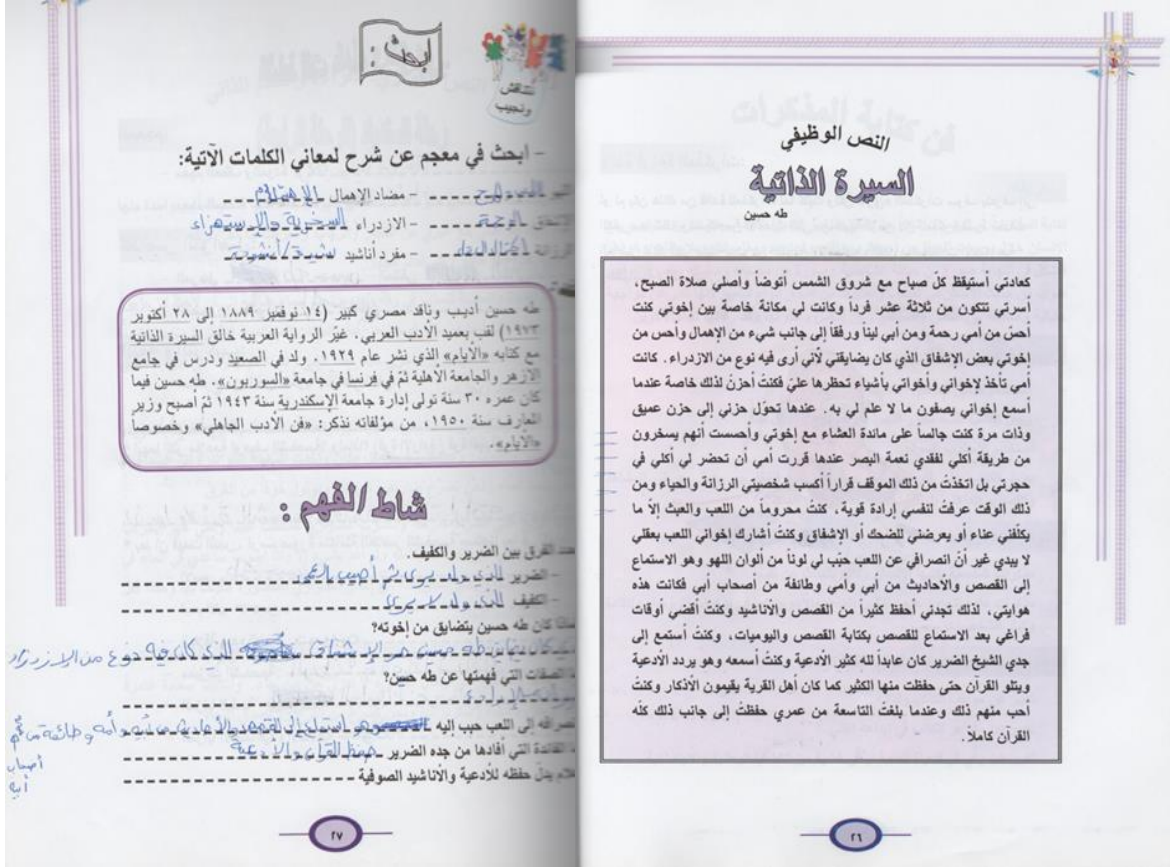 النص الوظيفي
السيرة الذاتية
طه حسين
كعادتي أستيقظ كلّ صباح مع شروق الشمس أتوضأ وأصلي صلاة الصبح،
أسرتي تتكون من ثلاثة عشر فرداً وكانت لي مكانة خاصة بين إخوتي كنت
أحسّ من أمي رحمة ومن أبي ليناً ورفقاً إلى جانب شيء من الإهمال وأحس من
إخوتي بعض الإشفاق الذي كان يضايقني لأني أرى فيه نوع من الازدراء. كانت
أمي تأذن لإخواني وأخواتي بأشياء تحظرها عليّ فكنتُ أحزنُ لذلك خاصة عندما
أسمع إخواني يصفون ما لا علم لي به. عندها تحوّل حزني إلى حزن عميق
وذات مرة كنت جالساً على مائدة العشاء مع إخوتي وأحسست أنهم يسخرون
من طريقة أكلي لفقدي نعمة البصر عندها قررت أمي أن تحضر لي أكلي في
حجرتي بل اتخذتُ من ذلك الموقف قراراً أكسب شخصيتي الرزانة والحياء ومن
ذلك الوقت عرفتُ لنفسي إرادة قوية، كنتُ محروماً من اللعب والعبث إلاّ ما
يكلّفني عناء أو يعرضني للضحك أو الإشفاق وكنتُ أشارك إخواني اللعب بعقلي
لا بيدي غير أنّ انصرافي عن اللعب حبّب لي لوناً من ألوان اللهو وهو الاستماع
إلى القصص والأحاديث من أبي وأمي وطائفة من أصحاب أبي فكانت هذه
هوايتي، لذلك تجدني أحفظ كثيراً من القصص والأناشيد وكنتُ أقضي أوقات
فراغي بعد الاستماع للقصص بكتابة القصص واليوميات، وكنتُ أستمع إلى
جدي الشيخ الضرير كان عابداً لله كثير الأدعية وكنتُ أسمعه وهو يردد الأدعية
ويتلو القرآن حتى حفظت منها الكثير كما كان أهل القرية يقيمون الأذكار وكنتُ
أحب منهم ذلك وعندما بلغتُ التاسعة من عمري حفظتُ إلى جانب ذلك كلّه
القرآن كاملاً.
٢٦
ابحث :
نتناقش
ونجيب
- ابحث في معجم عن شرح لمعاني الكلمات الآتية:
- مضاد الإهمال الاهتمام
الرحمة - الازدراء السخرية والاستهزاء
الرزانة - مفرد أناشيد نشيد/أنشودة
طه حسين أديب وناقد مصري كبير (١٤ نوفمبر ١٨٨٩ إلى ٢٨ أكتوبر
١٩٧٣) لقب بعميد الأدب العربي. غيّر الرواية العربية خالق السيرة الذاتية
مع كتابه «الأيام» الذي نشر عام ١٩٢٩. ولد في الصعيد ودرس في جامع
الأزهر والجامعة الأهلية ثمّ في فرنسا في جامعة «السوربون». طه حسين فيما
كان عمره ٣٠ سنة تولى إدارة جامعة الإسكندرية سنة ١٩٤٣ ثمّ أصبح وزير
المعارف سنة ١٩٥٠، من مؤلفاته نذكر: «فن الأدب الجاهلي» وخصوصاً
«الأيام».
شاط الفهم :
الفرق بين الضرير والكفيف.
- الضرير الذي ولد يرى ثم أصيب بالعمى
- الكفيف الذي ولد لا يرى
كان طه حسين يتضايق من إخوته؟
طه حسين من الإشفاق الذي كان فيه نوع من الازدراء
الصفات التي فهمتها عن طه حسين؟
إلى اللعب حبب إليه استماع إلى القصص والأحاديث من أبيه وأمه وطائفة من
أصحاب
أبيه
الفائدة التي أفادها من جده الضرير حفظ القرآن والأدعية
يدلّ حفظه للأدعية والأناشيد الصوفية
٢٧